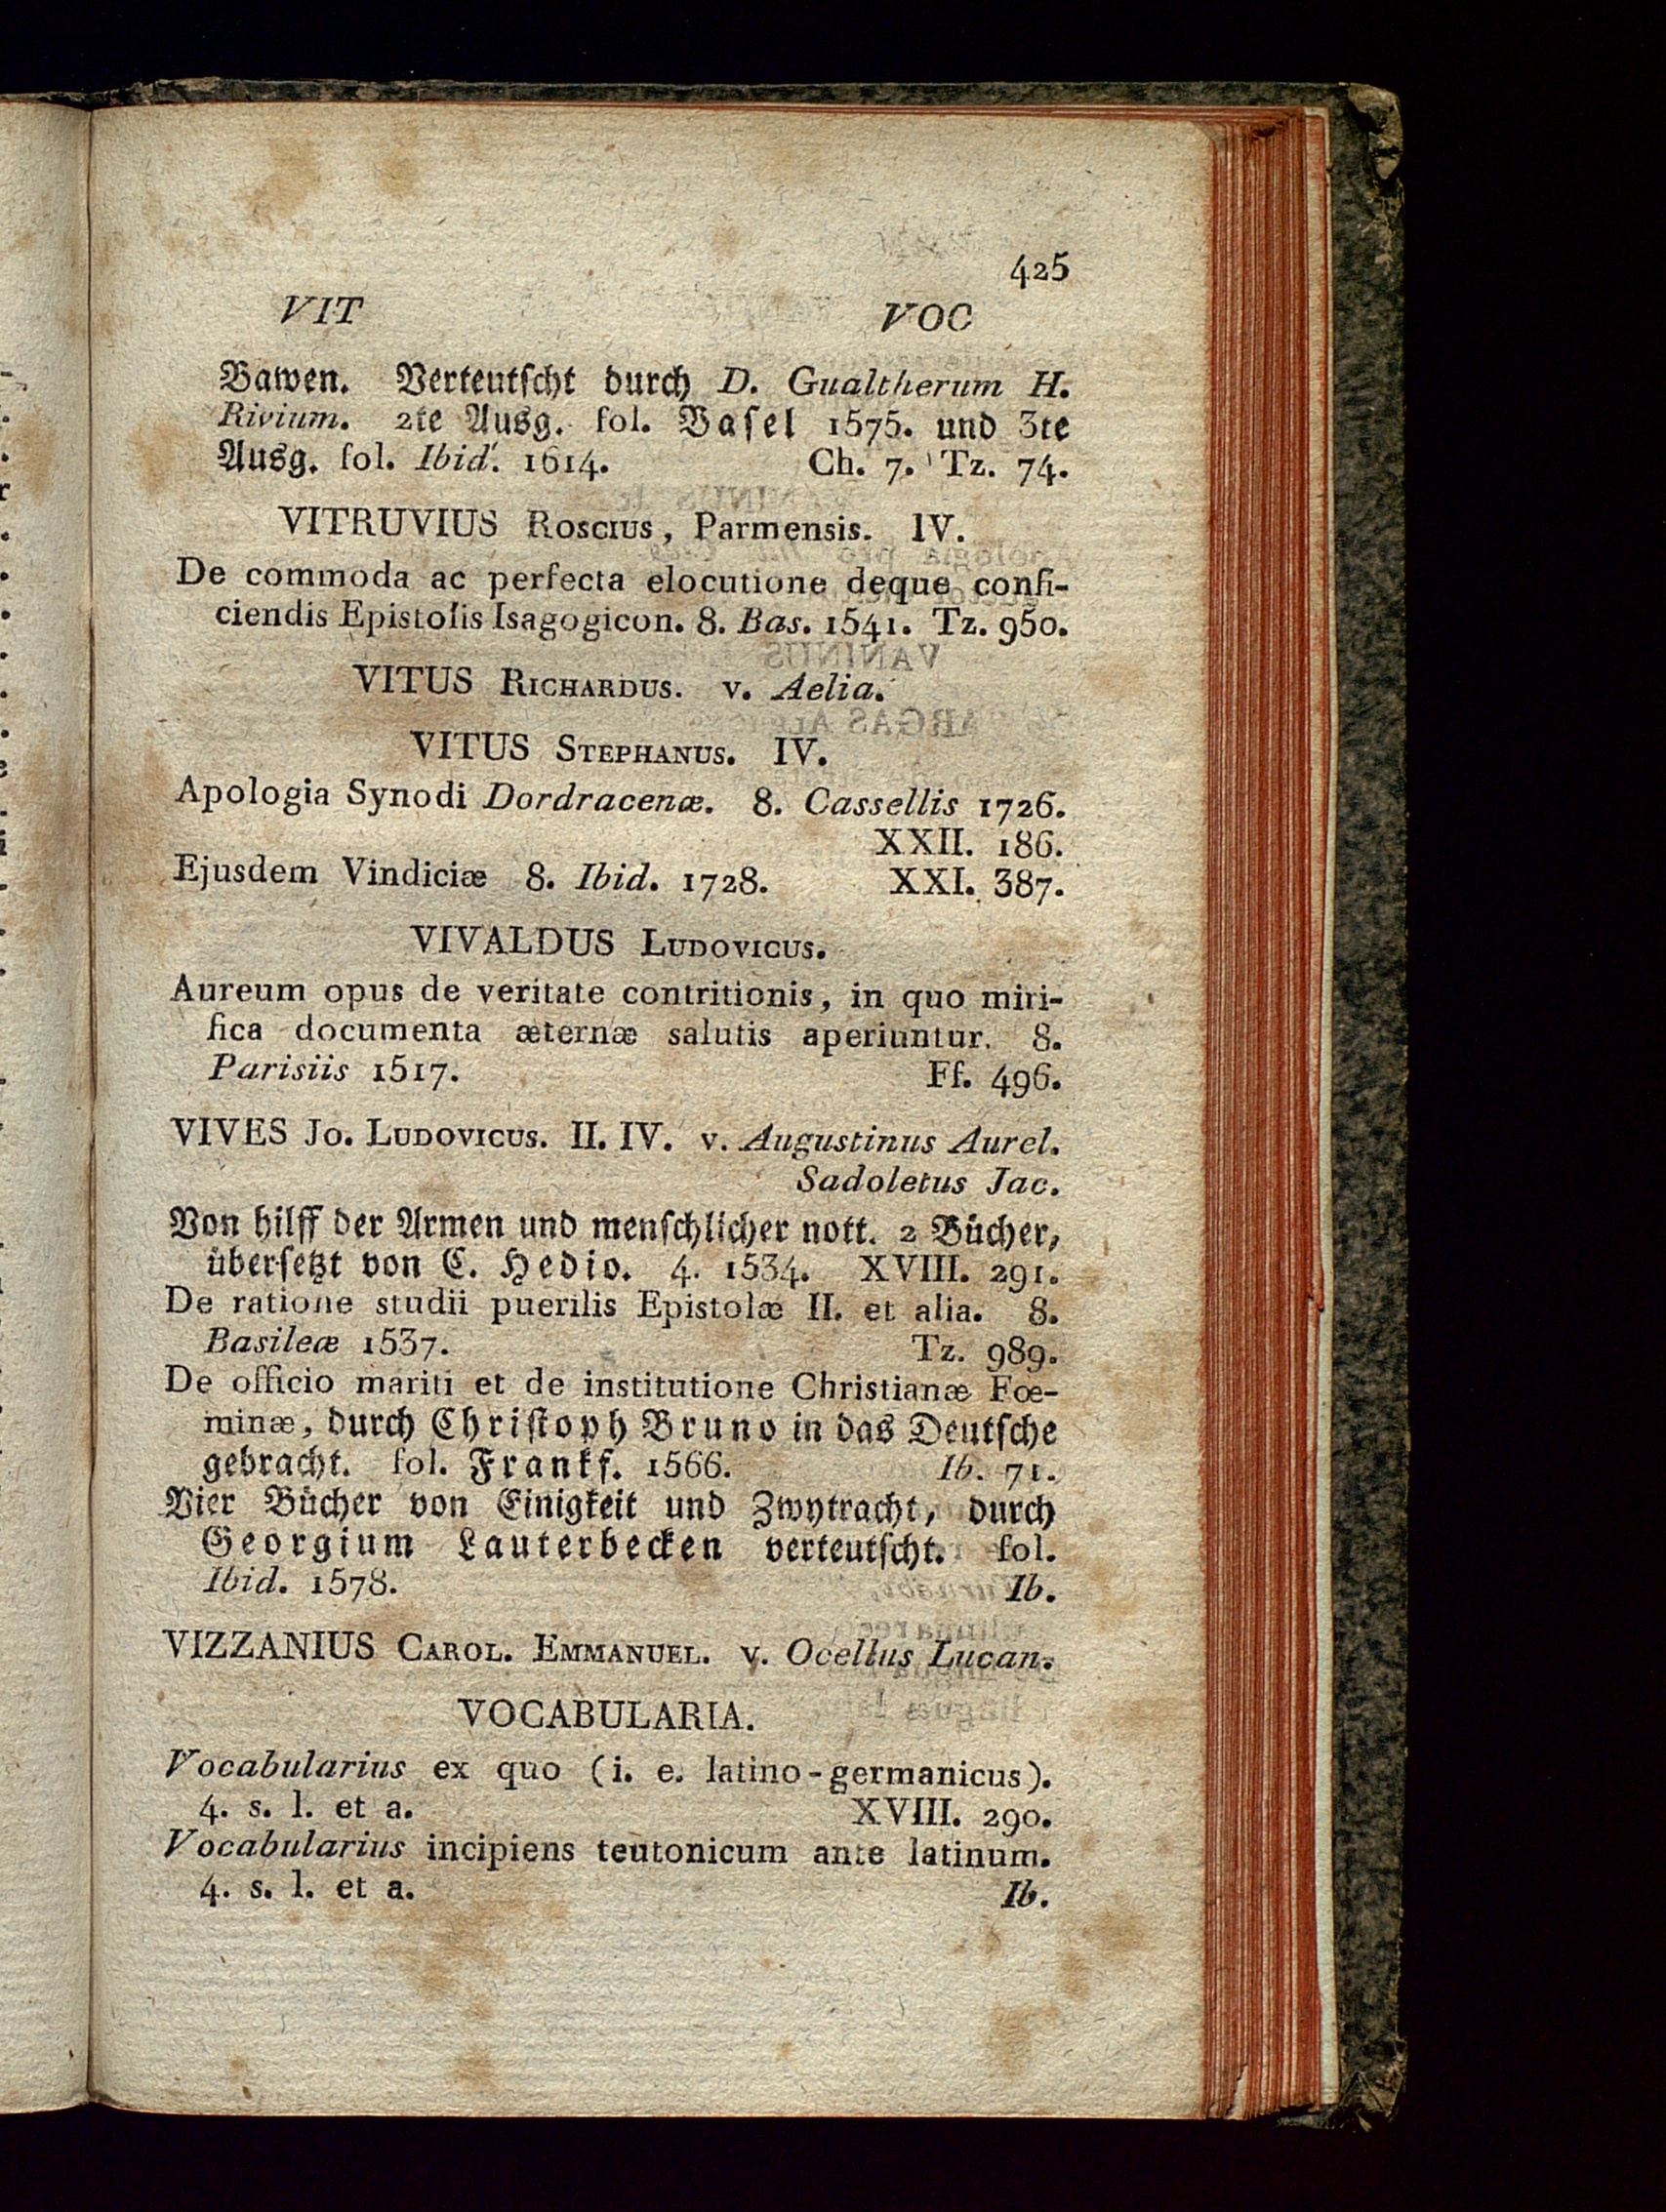 425
VIT VOC
Bawen. Verteutscht durch D. Gualtherum H.
Rivium. 2te Ausg. fol. Basel 1575. und 3te
Ausg. fol. Ibid. 1614. Ch. 7. Tz. 74.
VITRUVIUS Roscius, Parmensis. IV.
De commoda ac perfecta elocutione deque confi-
ciendis Epistolis Isagogicon. 8. Bas. 1541. Tz. 950.
VITUS Richardus. v. Aelia.
VITUS Stephanus. IV.
Apologia Synodi Dordracenæ. 8. Cassellis 1726.
XXII. 186.
Ejusdem Vindiciæ 8. Ibid. 1728. XXI. 387.
VIVALDUS Ludovicus.
Aureum opus de veritate contritionis, in quo miri-
fica documenta æternæ salutis aperiuntur. 8.
Parisiis 1517. Ff. 496.
VIVES Jo. Ludovicus. II. IV. v. Augustinus Aurel.
Sadoletus Jac.
Von hilff der Armen und menschlicher nott. 2 Bücher,
übersetzt von C. Hedio. 4. 1534. XVIII. 291.
De ratione studii puerilis Epistolæ II. et alia. 8.
Basileæ 1537. Tz. 989.
De officio mariti et de institutione Christianæ Fœ-
minæ, durch Christoph Bruno in das Deutsche
gebracht. fol. Frankf. 1566. Ib. 71.
Vier Bücher von Einigkeit und Zwytracht, durch
Georgium Lauterbecken verteutscht. fol.
Ibid. 1578. Ib.
VIZZANIUS Carol. Emmanuel. v. Ocellus Lucan.
VOCABULARIA.
Vocabularius ex quo (i. e. latino-germanicus).
4. s. l. et a. XVIII. 290.
Vocabularius incipiens teutonicum ante latinum.
4. s. l. et a. Ib.